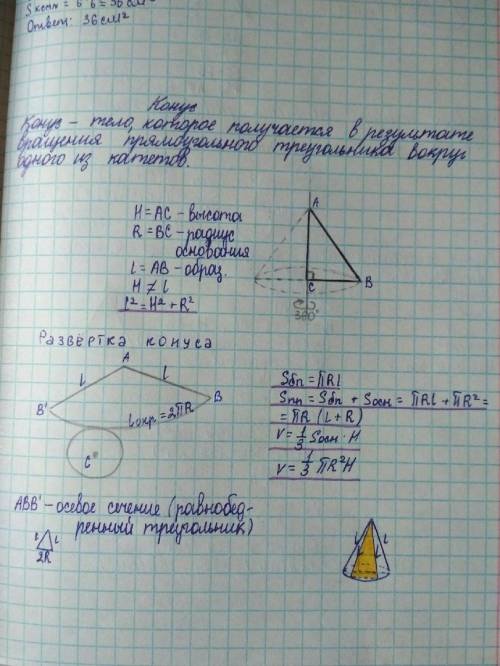 Sкспп = 6·6 = 36 см²
Ответ: 36 см²
Конус
Конус – тело, которое получается в результате
вращения прямоугольного треугольника вокруг
одного из катетов.
H = AC – высота
R = BC – радиус
основания
l = AB – образ.
H ≠ l
l² = H² + R²
A
B
C
360°
Развёртка конуса
A
l
l
B'
B
lокр. = 2πR
C
Sбп = πRl
Sпп = Sбп + Sосн = πRl + πR² =
= πR (l + R)
V = 1/3 Sосн · H
V = 1/3 πR²H
ABB' – осевое сечение (равнобед-
ренный треугольник)
l
l
2R
l
l